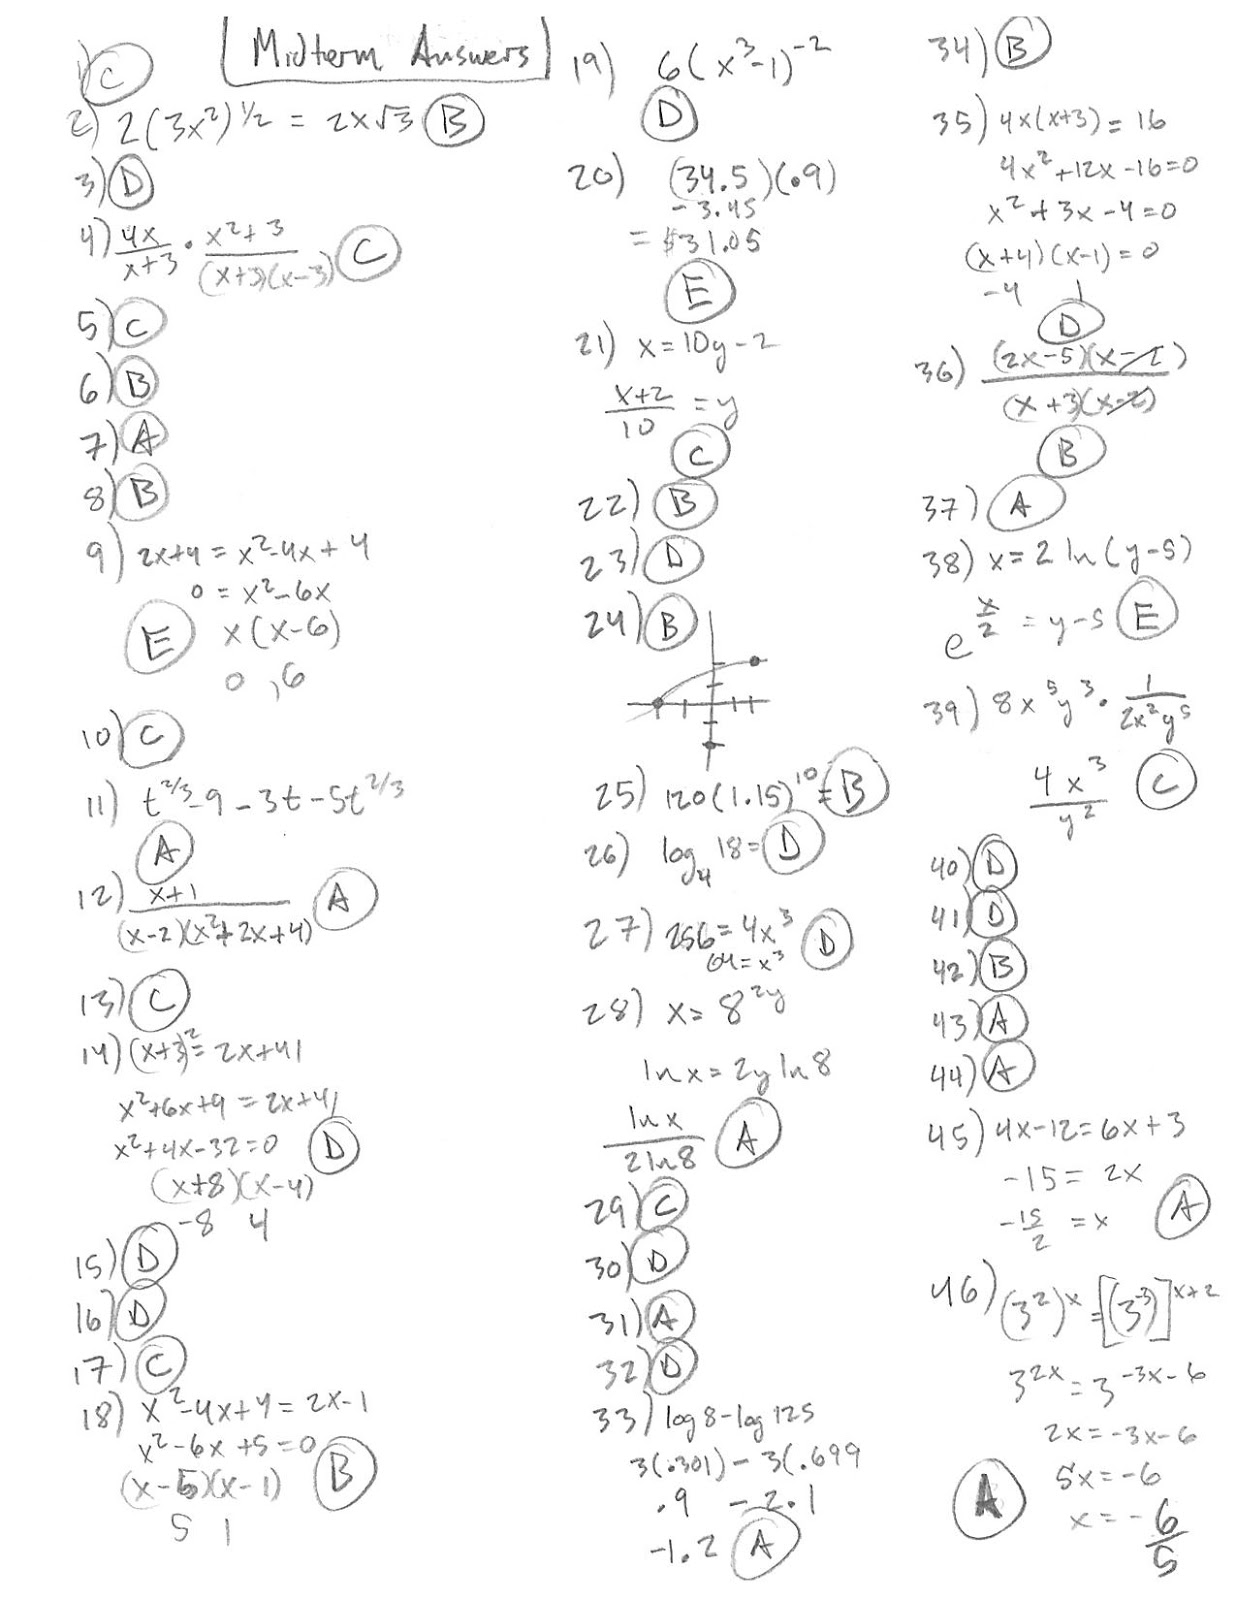 Midterm Answers
1) C
2) 2(3x²)^1/2 = 2x√3 B
3) D
4) 4x/x+3 · x²+3/(x+3)(x-3) C
5) C
6) B
7) A
8) B
9) 2x+4 = x²-4x+4
0 = x²-6x
E x(x-6)
0, 6
10) C
11) t^2/3-9-3t-5t^2/3
A
12) x+1/(x-2)(x²+2x+4) A
13) C
14) (x+3)² = 2x+41
x²+6x+9 = 2x+41
x²+4x-32=0 D
(x+8)(x-4)
-8 4
15) D
16) D
17) C
18) x²-4x+4 = 2x-1
x²-6x+5=0
(x-5)(x-1) B
5 1
19) 6(x³-1)^-2
D
20) (34.5)(.9)
-3.45
= $31.05
E
21) x=10y-2
x+2/10 = y
C
22) B
23) D
24) B
25) 120(1.15)^10 = B
26) log₄ 18 = D
27) 256=4x³ D
64=x³
28) x=8^2y
ln x = 2y ln 8
ln x/2 ln 8 A
29) C
30) D
31) A
32) D
33) log 8 - log 125
3(.301) - 3(.699
.9 -2.1
-1.2 A
34) B
35) 4x(x+3) = 16
4x²+12x-16=0
x²+3x-4=0
(x+4)(x-1)=0
-4 1
D
36) (2x-5)(x-2)/(x+3)(x-2)
B
37) A
38) x=2 ln(y-5)
e^x/2 = y-5 E
39) 8x⁵y³ · 1/2x²y⁵
4x³/y² C
40) D
41) D
42) B
43) A
44) A
45) 4x-12=6x+3
-15 = 2x
-15/2 = x A
46) (3²)^x = [(3^-3)]^x+2
3^2x = 3^-3x-6
2x=-3x-6
5x=-6
A x = -6/5